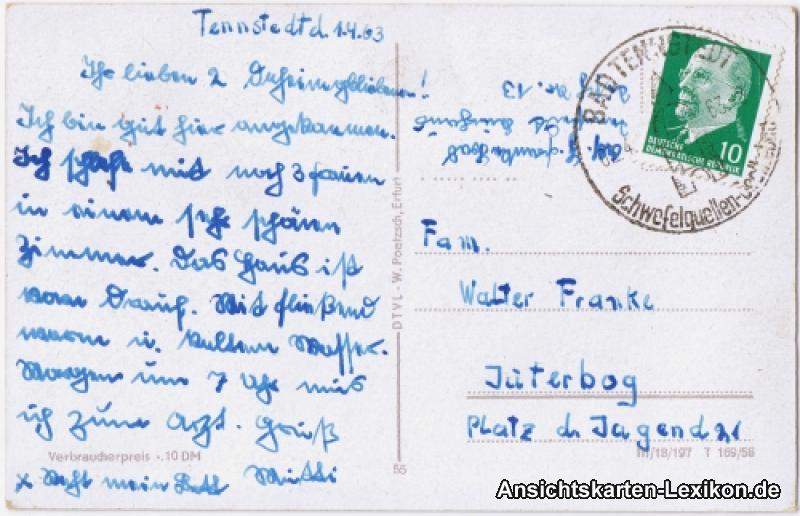 Tennstedt d. 1.4.63
Ihr lieben 2 Daheimgebliebenen!
Ich bin gut hier angekommen.
Ich schlafe mit noch 3 Frauen
in einem sehr schönen
Zimmer. Das Haus ist
vorn Drauf. Mit fließend
warm u. kaltem Wasser.
Morgen um 7 Uhr muß
ich zum Arzt. Gruß
Mutti
x mein Bett
Verbraucherpreis -.10 DM
DTVL - W. Poetzsch, Erfurt
55
Nr. 13
BAD TENNSTEDT
Schwefelquellen
DEUTSCHE
DEMOKRATISCHE REPUBLIK
10
Fam.
Walter Franke
Jüterbog
Platz d. Jugend 21
III/18/197 T 169/58
Ansichtskarten-Lexikon.de